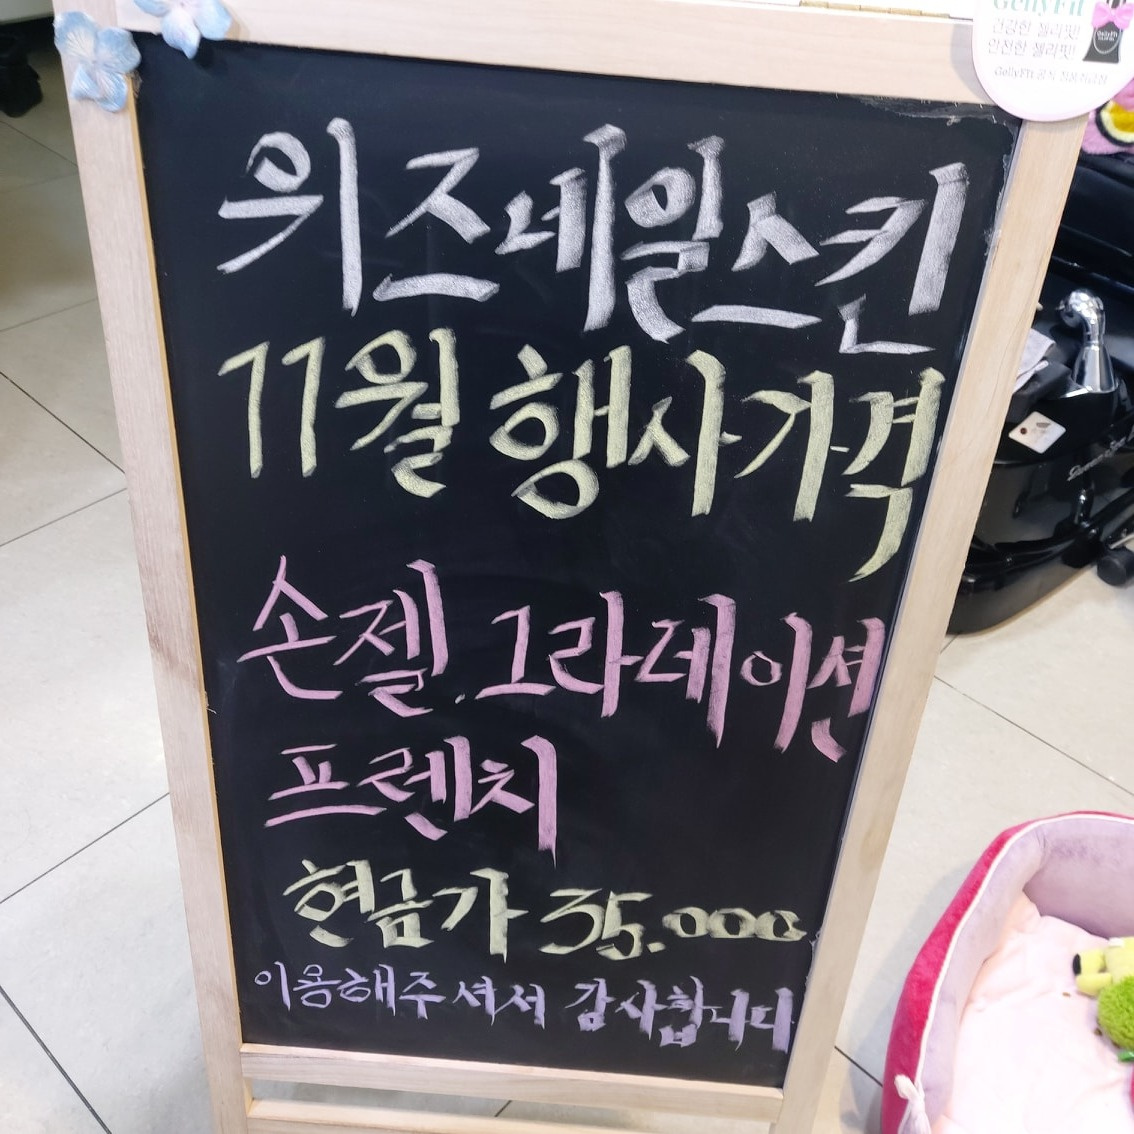 GellyFit
건강한 젤리핏!
안전한 젤리핏!
위즈네일스킨
11월 행사가격
손젤.그라데이션
프렌치
현금가 35.000
이용해주셔서 감사합니다